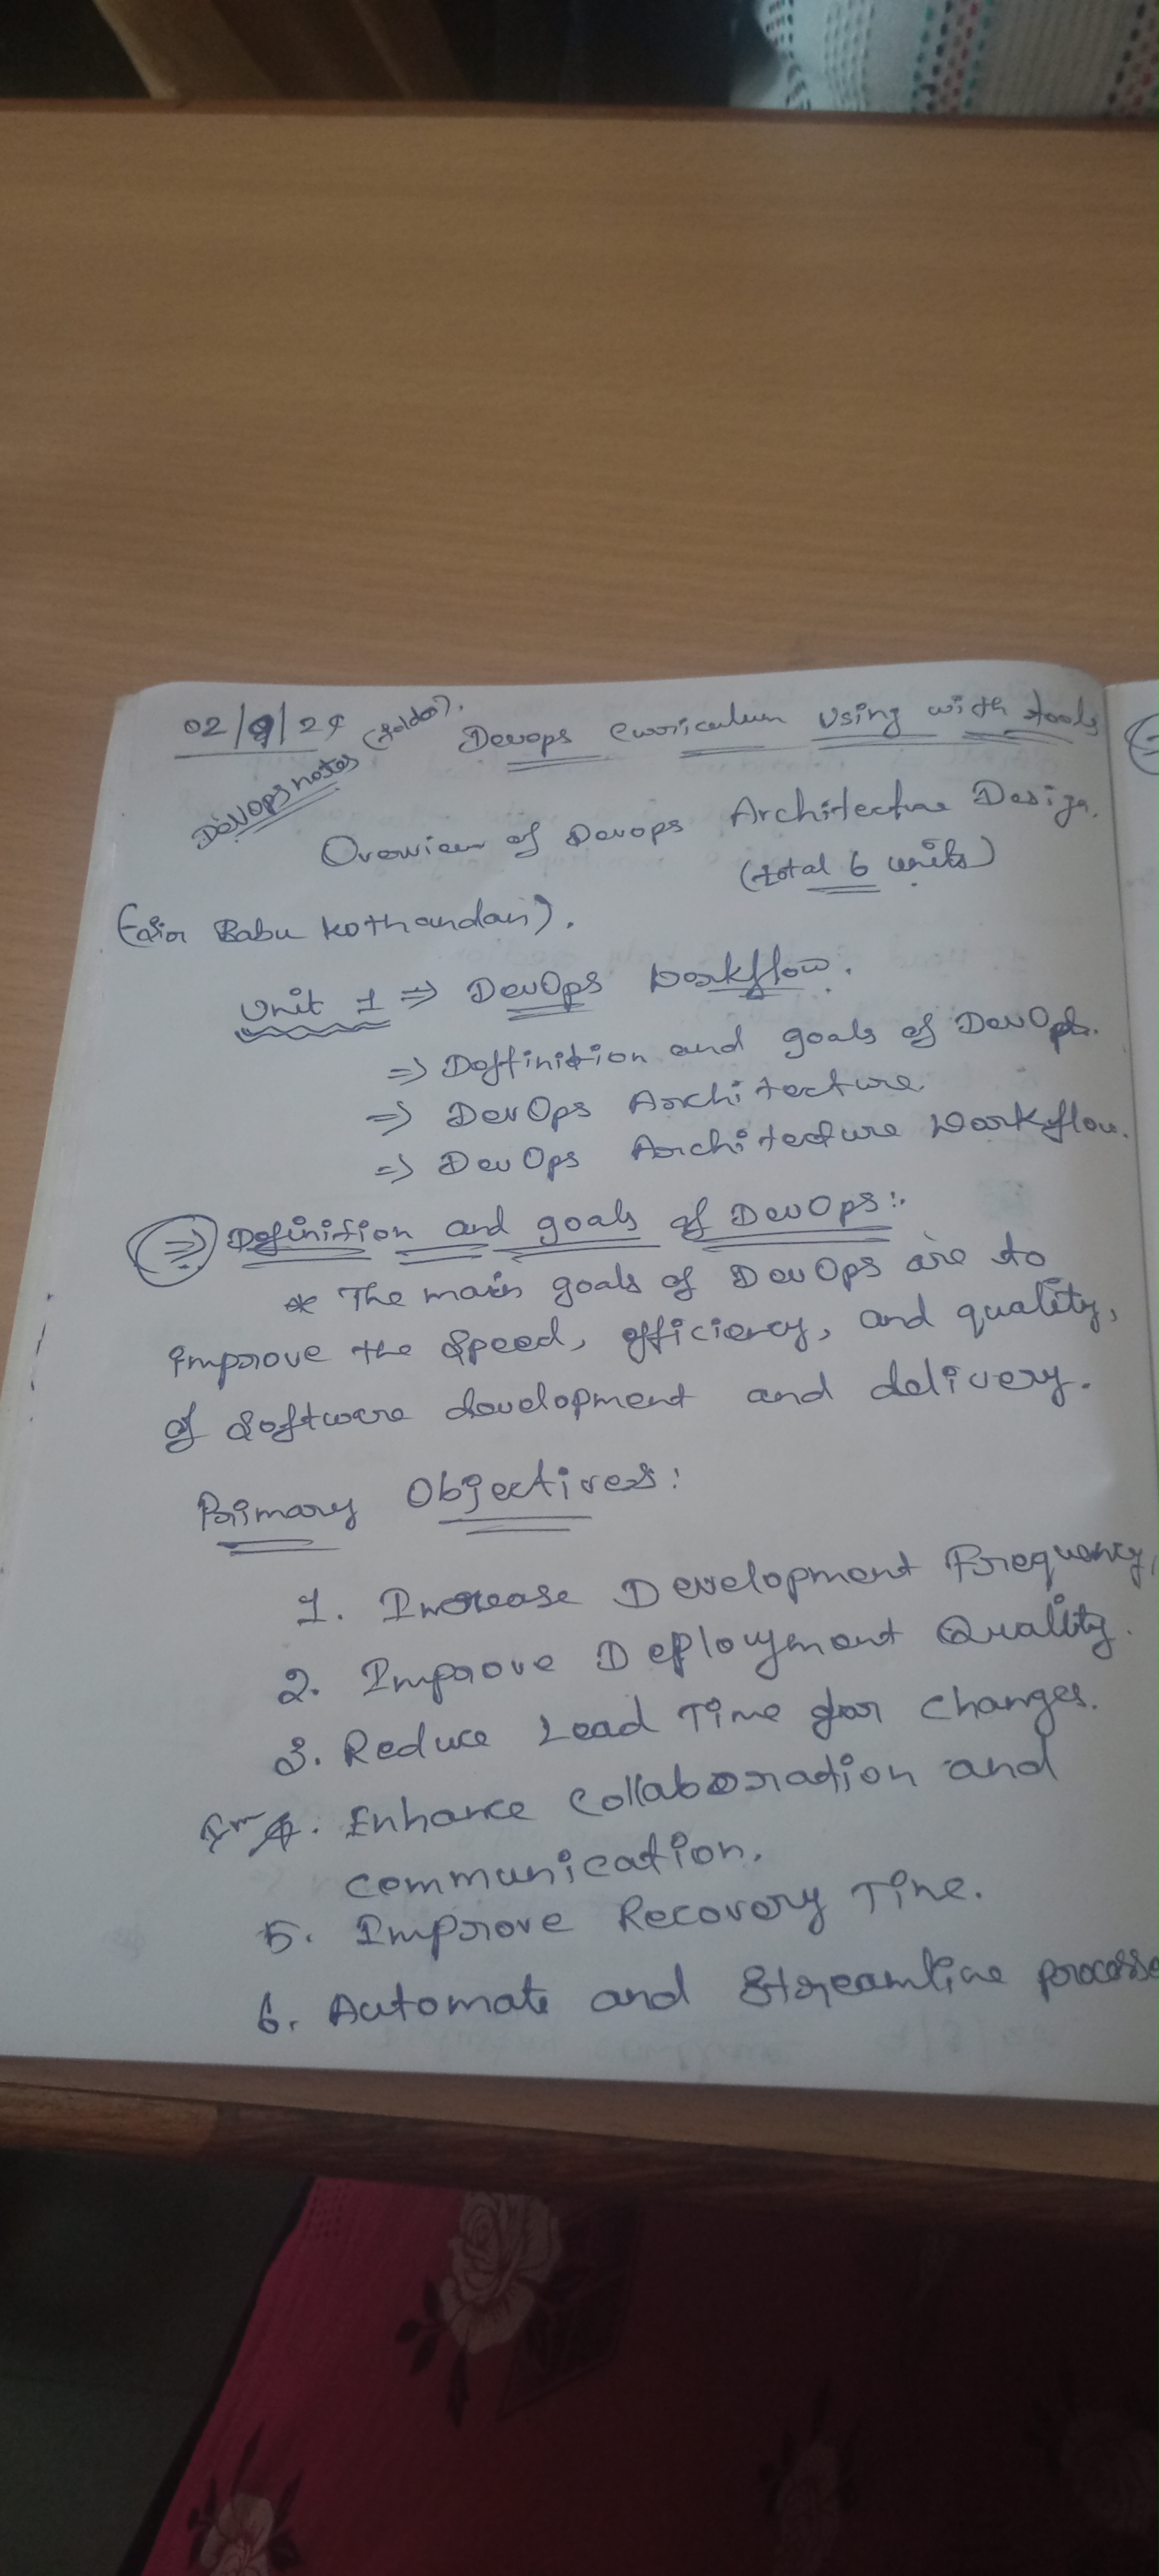 02/9/24 (folder). Devops Curriculum Using with tools
DevOps notes
Overview of Devops Architecture Design.
(total 6 units)
Babu Kothandan).
Unit 1 => DevOps Workflow.
=> Deffinition and goals of DevOps.
=> DevOps Architecture.
=> DevOps Architecture Workflow.
=> Definition and goals of DevOps:.
* The main goals of DevOps are to
improve the speed, efficiency, and quality,
of software development and delivery.
Primary Objectives:
1. Increase Development Frequency,
2. Improve Deployment Quality.
3. Reduce Lead Time for changes.
4. Enhance Collaboration and
communication.
5. Improve Recovery Time.
6. Automate and Streamline